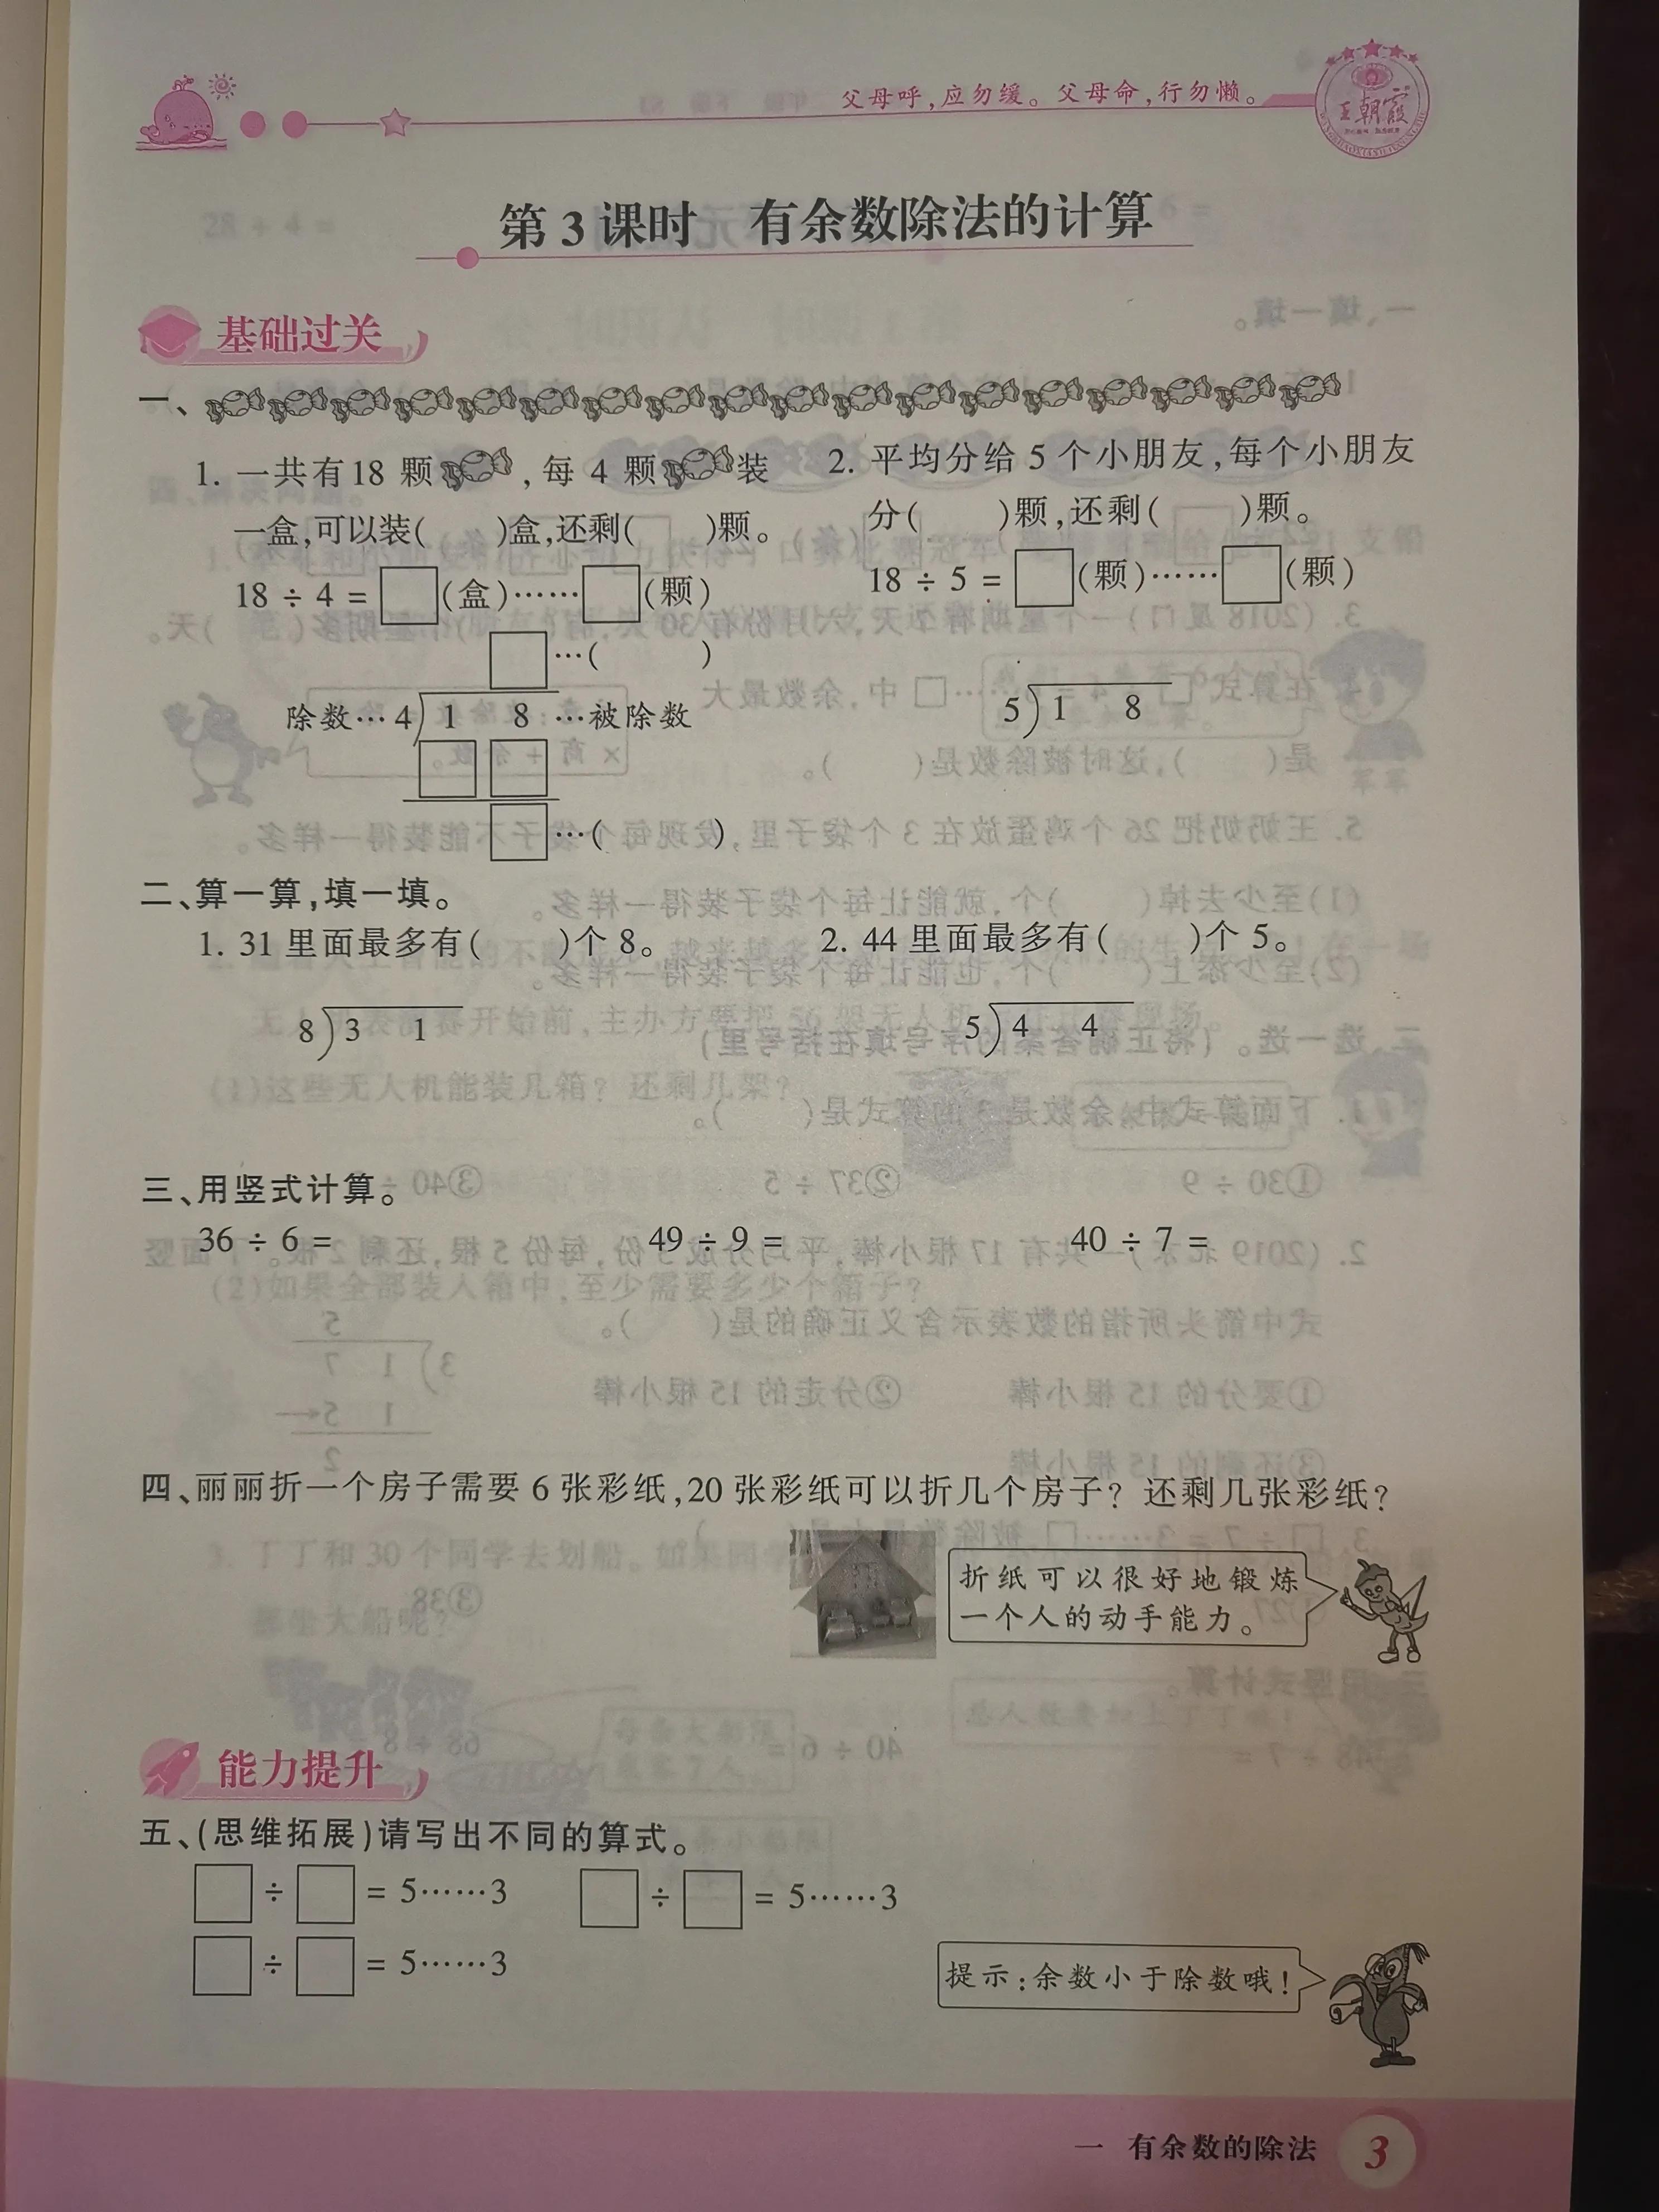 父母呼,应勿缓。父母命,行勿懒。
王朝霞
第3课时 有余数除法的计算
基础过关
一、
1. 一共有18颗,每4颗装
一盒,可以装( )盒,还剩( )颗。
18÷4=□(盒)……□(颗)
□…( )
除数…4)1 8…被除数
□□
□…( )
2. 平均分给5个小朋友,每个小朋友
分( )颗,还剩( )颗。
18÷5=□(颗)……□(颗)
5)1 8
二、算一算,填一填。
1. 31里面最多有( )个8。
8)3 1
2. 44里面最多有( )个5。
5)4 4
三、用竖式计算。
36÷6= 49÷9= 40÷7=
四、丽丽折一个房子需要6张彩纸,20张彩纸可以折几个房子?还剩几张彩纸?
折纸可以很好地锻炼
一个人的动手能力。
能力提升
五、(思维拓展)请写出不同的算式。
□÷□=5……3 □÷□=5……3
□÷□=5……3
提示:余数小于除数哦!
一 有余数的除法 3